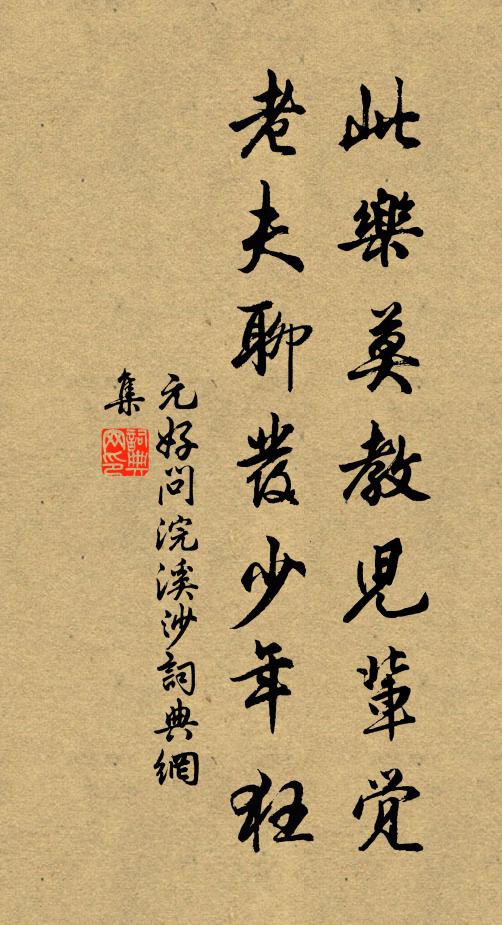 此樂莫教兒輩觉
老夫聊發少年狂
元好问浣溪沙詞典網
集
詞典網印